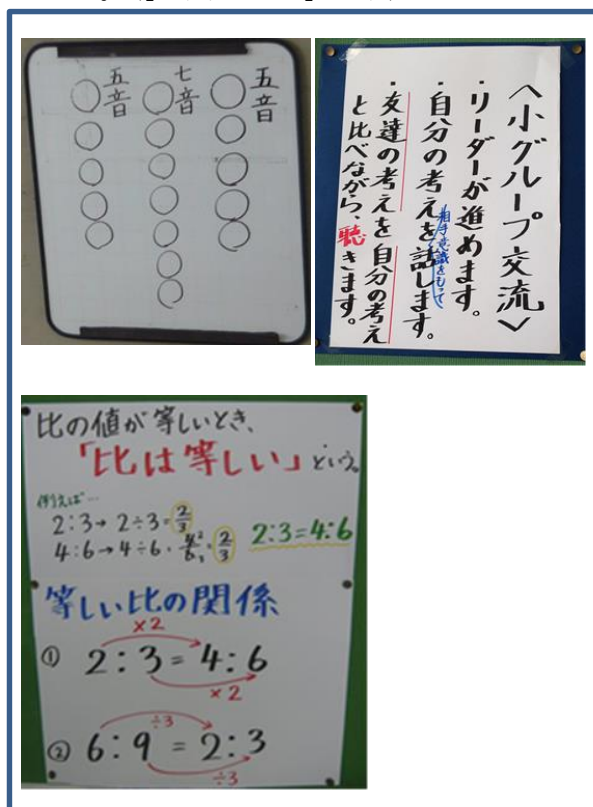 五音
七音
五音
〈小グループ交流〉
・リーダーが進めます。
・自分の考えを話します。
相手意識をもって
・友達の考えを自分の考え
と比べながら、聴きます。
比の値が等しいとき、
「比は等しい」という。
例えば…
2:3→2÷3=2/3
4:6→4÷6=4/6=2/3
2:3=4:6
等しい比の関係
×2
① 2:3=4:6
×2
÷3
② 6:9=2:3
÷3